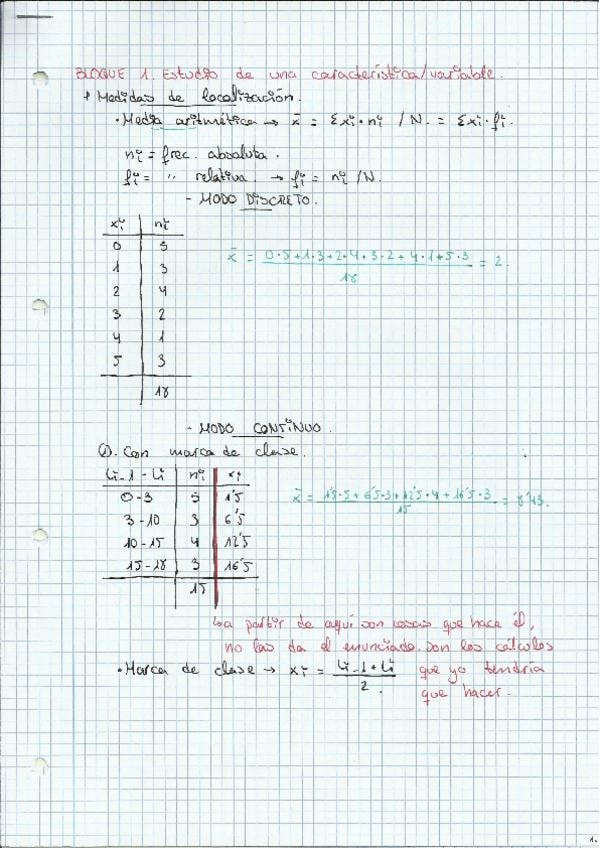 BLOQUE 1. Estudio de una característica/variable.
* Medidas de localización.
• Media aritmética → x̄ = Σxi·ni / N. = Σxi·fi.
ni = frec. absoluta.
fi = " relativa. → fi = ni/N.
- MODO DISCRETO.
xi ni
0 5
1 3
2 4
3 2
4 1
5 3
18
x̄ = 0·5+1·3+2·4+3·2+4·1+5·3 / 18 = 2.
- MODO CONTINUO.
①. Con marca de clase.
Li-1 - Li ni xi
0-3 5 1'5
3-10 3 6'5
10-15 4 12'5
15-18 3 16'5
15
x̄ = 1'5·5+6'5·3+12'5·4+16'5·3 / 15 = 8'43.
↳ a partir de aquí son cosas que hace él,
no las da el enunciado. Son los cálculos
que yo tendría
que hacer.
• Marca de clase → xi = Li-1 + Li / 2.
1.